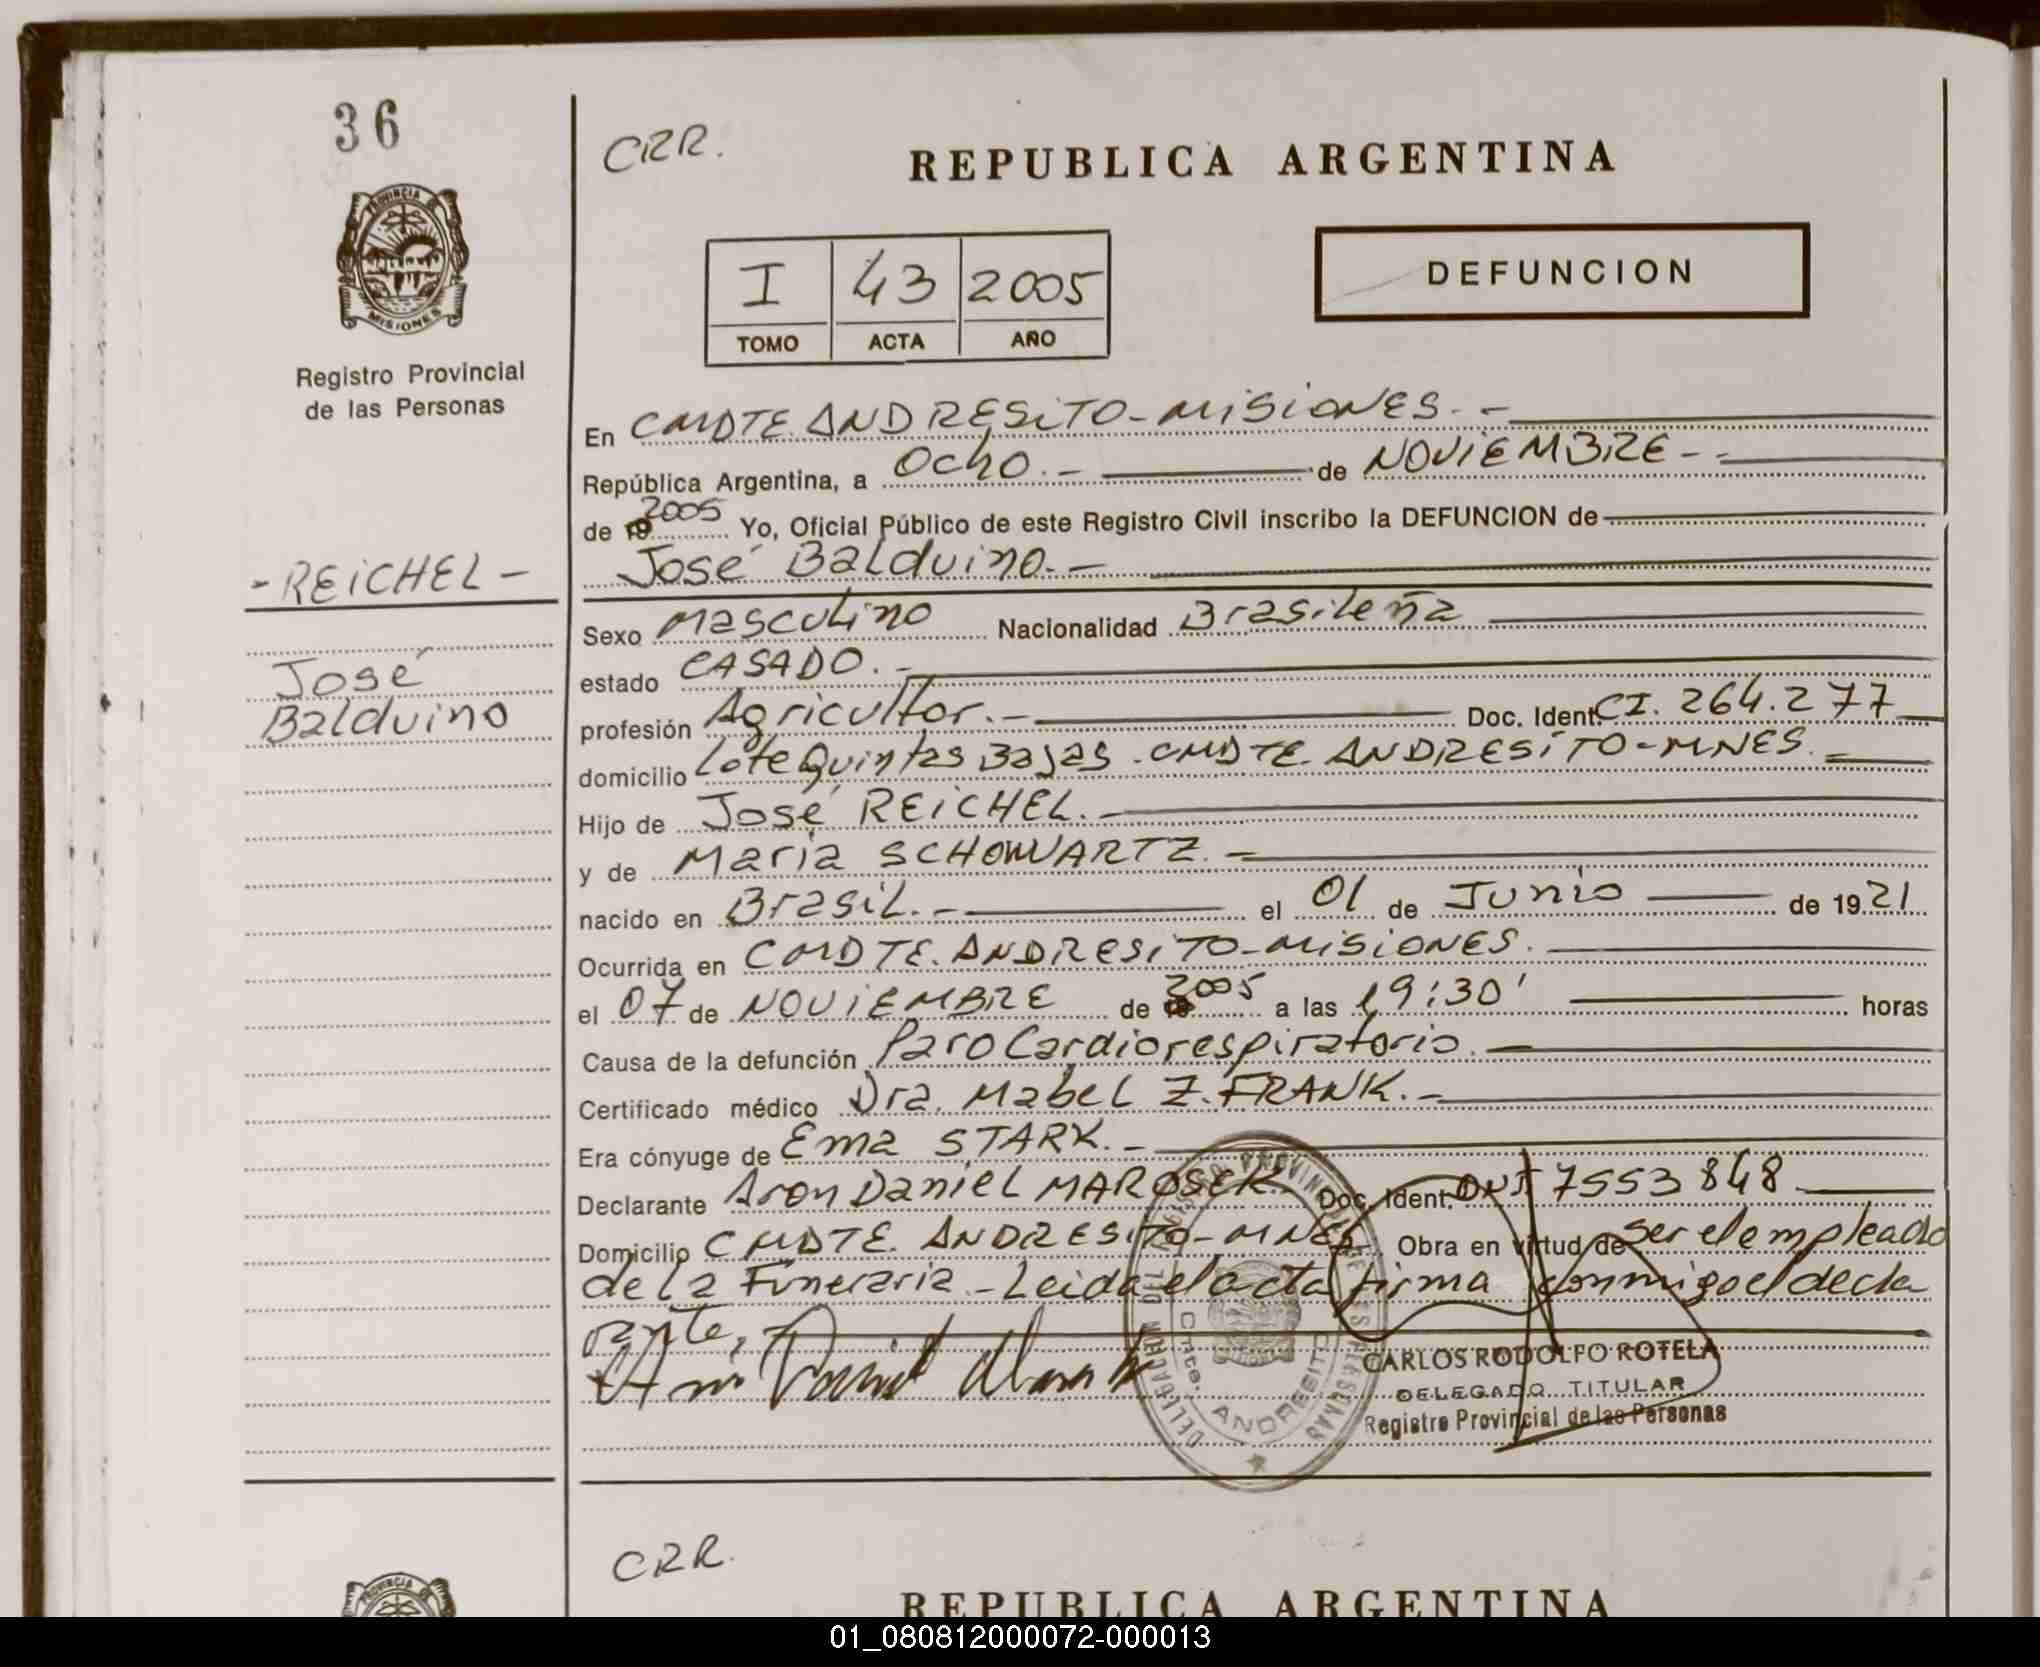 36
CRR.
REPUBLICA ARGENTINA
PROVINCIA DE MISIONES
I 43 2005
TOMO ACTA AÑO
DEFUNCION
Registro Provincial
de las Personas
En CMDTE ANDRESITO-MISIONES.-
República Argentina, a Ocho.- de NOVIEMBRE--
de 19 2005 Yo, Oficial Público de este Registro Civil inscribo la DEFUNCION de
José Balduino.-
-REICHEL-
José
Balduino
Sexo Masculino Nacionalidad Brasileña
estado CASADO.-
profesión Agricultor.- Doc. Ident. CI. 264.277
domicilio Lote Quintas Bajas. CMDTE. ANDRESITO-MNES.
Hijo de José REICHEL.-
y de Maria SCHOWARTZ.-
nacido en Brasil.- el 01 de Junio de 1921
Ocurrida en CMDTE. ANDRESITO-MISIONES.
el 07 de NOVIEMBRE de 19 2005 a las 19:30' horas
Causa de la defunción Paro Cardiorespiratorio.-
Certificado médico Dra. Mabel Z. FRANK.-
Era cónyuge de Ema STARK.-
Declarante Aron Daniel MAROSEK. Doc. Ident. DNI 7553848
Domicilio CMDTE. ANDRESITO-MNES Obra en virtud de ser el empleado
de la Funeraria.-Leida el acta firma conmigo el decla
rante,
CARLOS RODOLFO ROTELA
DELEGADO TITULAR
Registro Provincial de las Personas
DELEGACION
Cmte. ANDRESITO
CRR.
PROVINCIA DE
REPUBLICA ARGENTINA
01_080812000072-000013